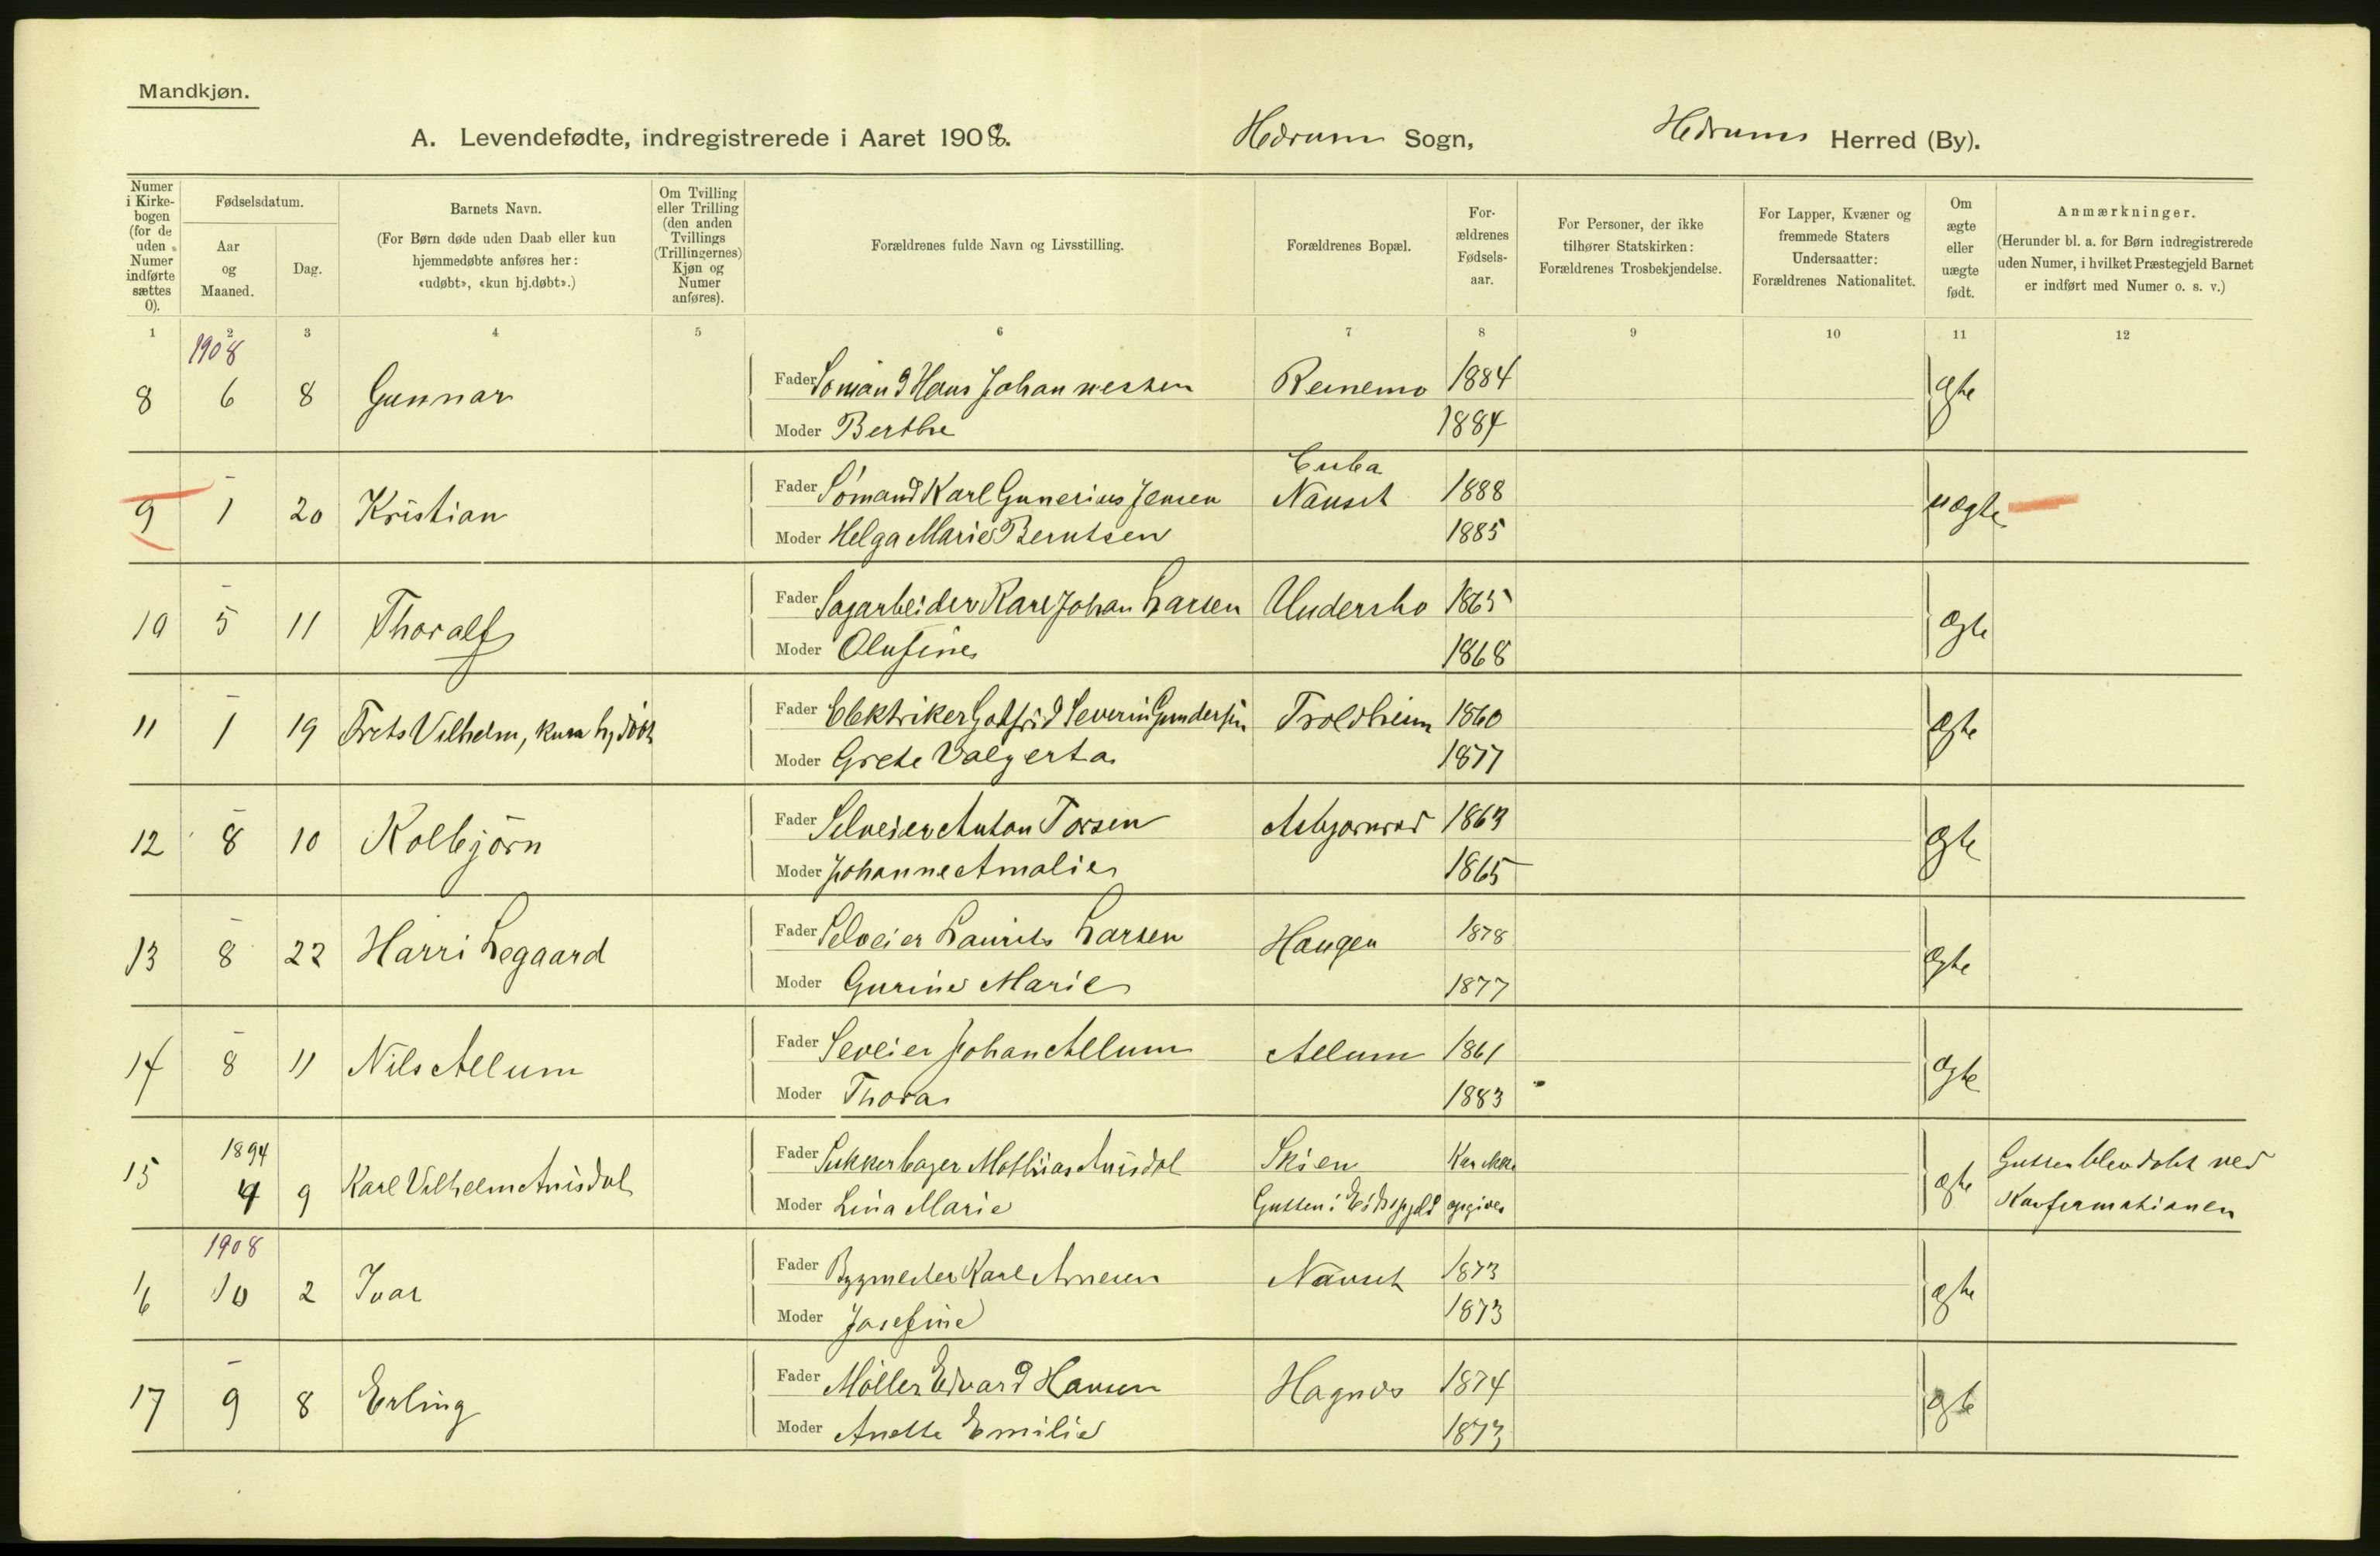 Mandkjøn.
A. Levendefødte, indregistrerede i Aaret 1908. Hedrum Sogn, Hedrum Herred (By).
Numer i Kirkebogen (for de uden Numer indførte sættes 0).
Fødselsdatum.
Aar og Maaned.
Dag.
Barnets Navn.
(For Børn døde uden Daab eller kun hjemmedøbte anføres her: «udøbt», «kun hj.døbt».)
Om Tvilling eller Trilling (den anden Tvillings (Trillingernes) Kjøn og Numer anføres).
Forældrenes fulde Navn og Livsstilling.
Forældrenes Bopæl.
Forældrenes Fødselsaar.
For Personer, der ikke tilhører Statskirken: Forældrenes Trosbekjendelse.
For Lapper, Kvæner og fremmede Staters Undersaatter: Forældrenes Nationalitet.
Om ægte eller uægte født.
Anmærkninger.
(Herunder bl. a. for Børn indregistrerede uden Numer, i hvilket Præstegjeld Barnet er indført med Numer o. s. v.)
1 2 3 4 5 6 7 8 9 10 11 12
1908
8 6 8 Gunnar Fader Sømand Hans Johannessen Reinemo 1884 ægte
Moder Berthe 1884
Cuba
9 – 1 20 Kristian Fader Sømand Karl Gunerius Jensen Nauset 1888 uægte
Moder Helga Marie Berntsen 1885
10 – 5 11 Thoralf Fader Sagarbeider Karl Johan Larsen Undersbo 1865 ægte
Moder Olufine 1868
11 – 1 19 Frets Vilhelm, kun hj.døbt Fader Elektriker Gotfrid Severin Gundersen Troldheim 1860 ægte
Moder Grete Valgerta 1877
12 – 8 10 Kolbjørn Fader Selveier Anton Torsen Asbjørnrød 1863 ægte
Moder Johanne Amalie 1865
13 – 8 22 Harri Legaard Fader Selveier Laurits Larsen Haugen 1878 ægte
Moder Gurine Marie 1877
14 – 8 11 Nils Allum Fader Seveier Johan Allum Allum 1861 ægte
Moder Thora 1883
15 1894 4 9 Karl Vilhelm Fader Sukkerbager Mathias Skien Kan ikke ægte Gutten blev døbt ved
Moder Lina Marie Gutten i opgives Konfirmationen
1908
16 10 2 Ivar Fader Bygmester Karl Arnesen Nauset 1873 ægte
Moder Josefine 1873
17 – 9 8 Erling Fader Møller Edvard Hansen Hagnes 1874 ægte
Moder Anette Emilie 1873